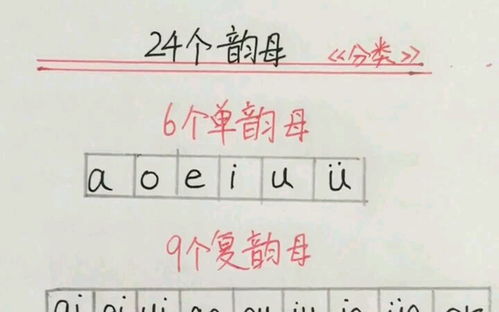 24个韵母 《分类》
6个单韵母
a o e i u ü
9个复韵母
ai ei ui ao ou iu ie üe er